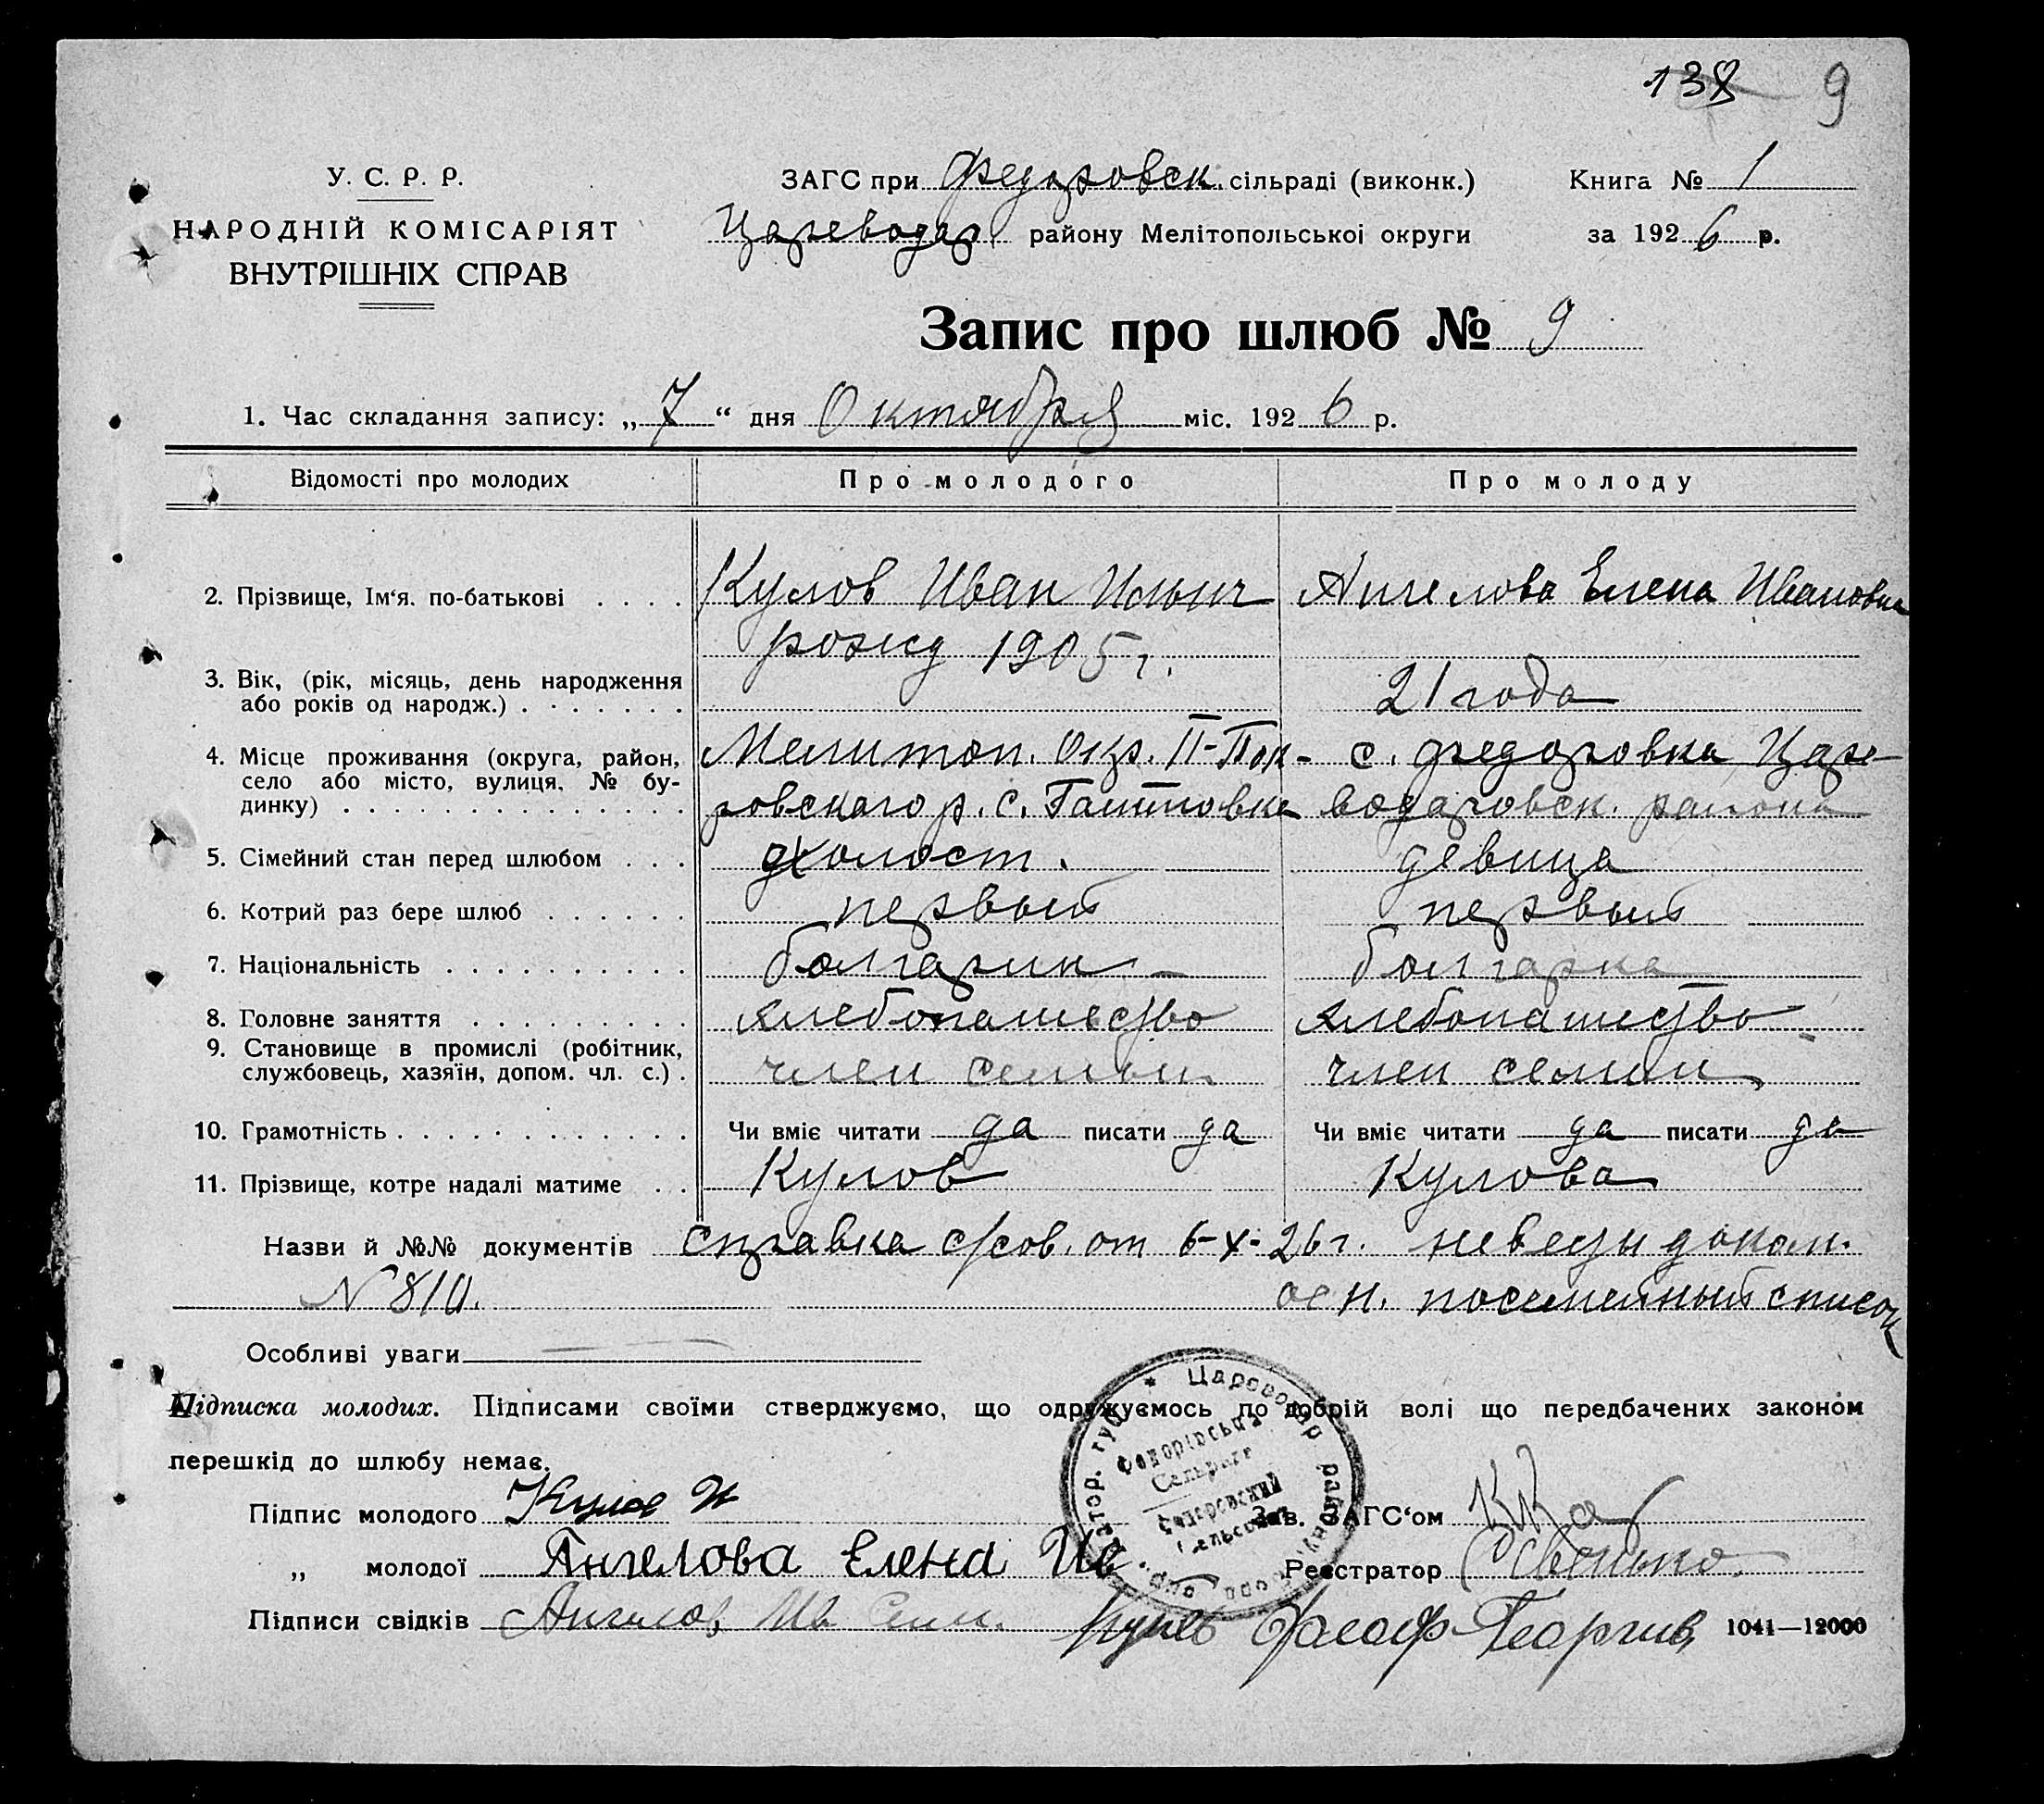 138 9
У. С. Р. Р.
НАРОДНІЙ КОМІСАРІЯТ
ВНУТРІШНІХ СПРАВ
ЗАГС при Федоровск. сільраді (виконк.) Книга № 1
Цареводар району Мелітопольської округи за 1926 р.
Запис про шлюб № 9
1. Час складання запису: „7“ дня Октября міс. 1926 р.
Відомості про молодих Про молодого Про молоду
2. Прізвище, Ім'я. по-батькові . . . . Кулов Иван Ильич Ангелова Елена Ивановна
рожд 1905 г.
3. Вік, (рік, місяць, день народження
або років од народж.) . . . . . . . 21 года
4. Місце проживання (округа, район, Мелитоп. Окр. II-Пок- с. Федоровка Царе-
село або місто, вулиця, № бу- ровскаго р. с. Гаммовка водаровск. района
динку) . . . . . . . . . . . . . .
5. Сімейний стан перед шлюбом . . . холост. девица
6. Котрий раз бере шлюб . . . . . . первый первый
7. Національність . . . . . . . . . . болгарин болгарка
8. Головне заняття . . . . . . . . . хлебопашество хлебопашество
9. Становище в промислі (робітник,
службовець, хазяїн, допом. чл. с.) . член семьи член семьи
10. Грамотність . . . . . . . . . . . . Чи вміє читати да писати да Чи вміє читати да писати да
11. Прізвище, котре надалі матиме . . Кулов Кулова
Назви й №№ документів справка с/сов. от 6-X-26 г.
N 810. посемейный список
Особливі уваги
Підписка молодих. Підписами своїми стверджуємо, що одружуємось по добрій волі що передбачених законом
перешкід до шлюбу немає.
Підпис молодого Кулов И Зав. ЗАГС'ом
„ молодої Ангелова Елена Ив Реєстратор
Підписи свідків Ангелов Ив Георгиев 1041—12000
Цареводар. район
Федорівська
Сельрада
Федоровский
Сельсовет